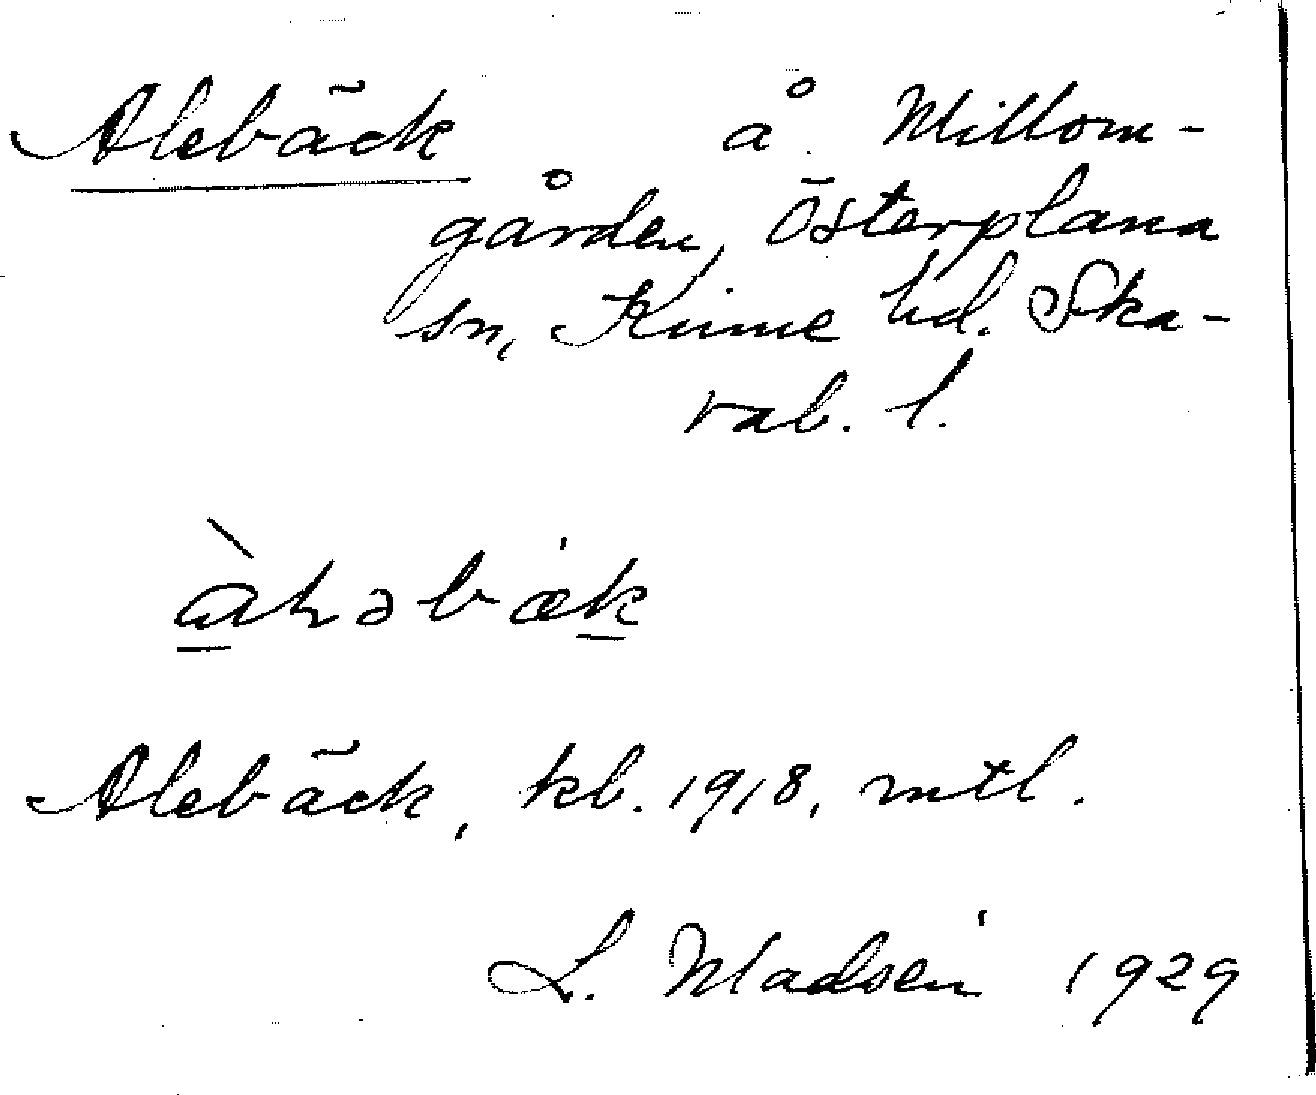 Alebäck å Millom-
gården, Österplana
sn, Kinne hd. Ska-
rab. l.
àləbæk
Alebäck, kb. 1918, mtl.
L. Madsén 1929